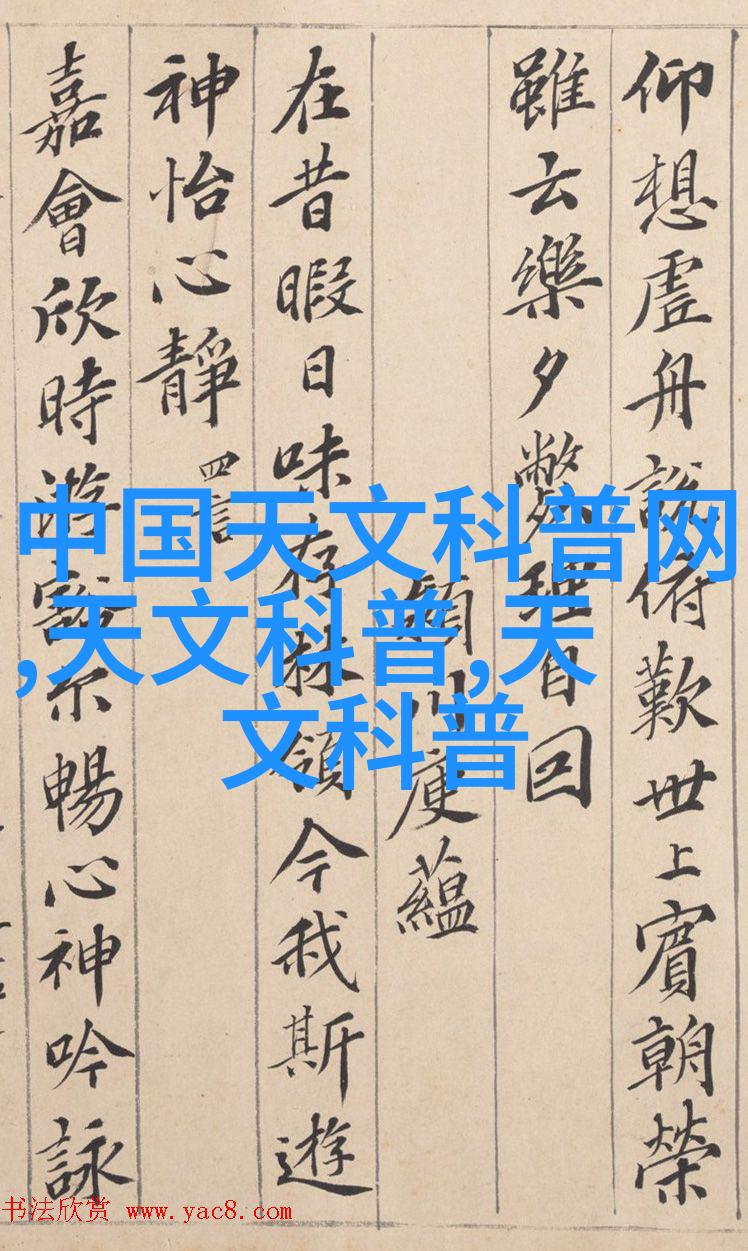 仰想虛舟說俯歎世上賓朝榮
雖云樂夕弊理自回
潁川庾蘊
在昔暇日味存林嶺今我斯遊
神怡心靜 四言
嘉會欣時游豁尔暢心神吟詠
中国天文科普网
,天文科普,天
文科普
书法欣赏 www.yac8.com